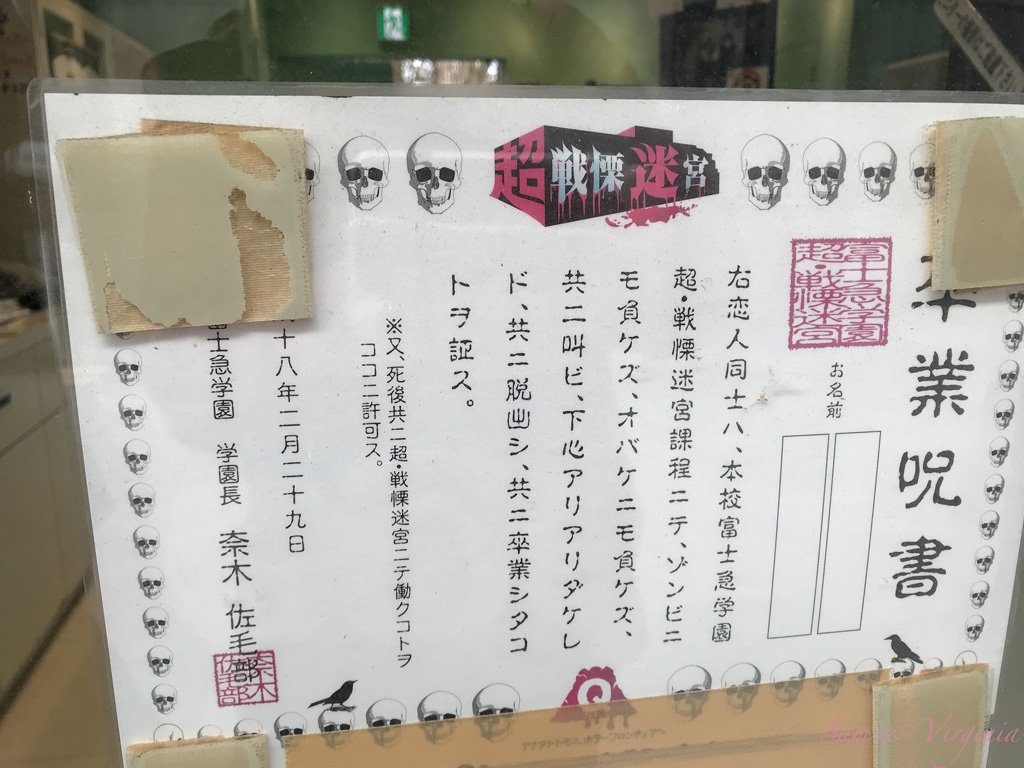 超戦慄迷宮
卒業呪書
富士急学園
超・戦慄迷宮
お名前
右恋人同士ハ、本校富士急学園
超・戦慄迷宮課程ニテ、ゾンビニ
モ負ケズ、オバケニモ負ケズ、
共ニ叫ビ、下心アリアリダケレ
ド、共ニ脱出シ、共ニ卒業シタコ
トヲ証ス。
※又、死後共ニ超・戦慄迷宮ニテ働クコトヲ
ココニ許可ス。
十八年二月二十九日
富士急学園 学園長 奈木 佐毛部
奈木
佐毛部
Sam & Virginia